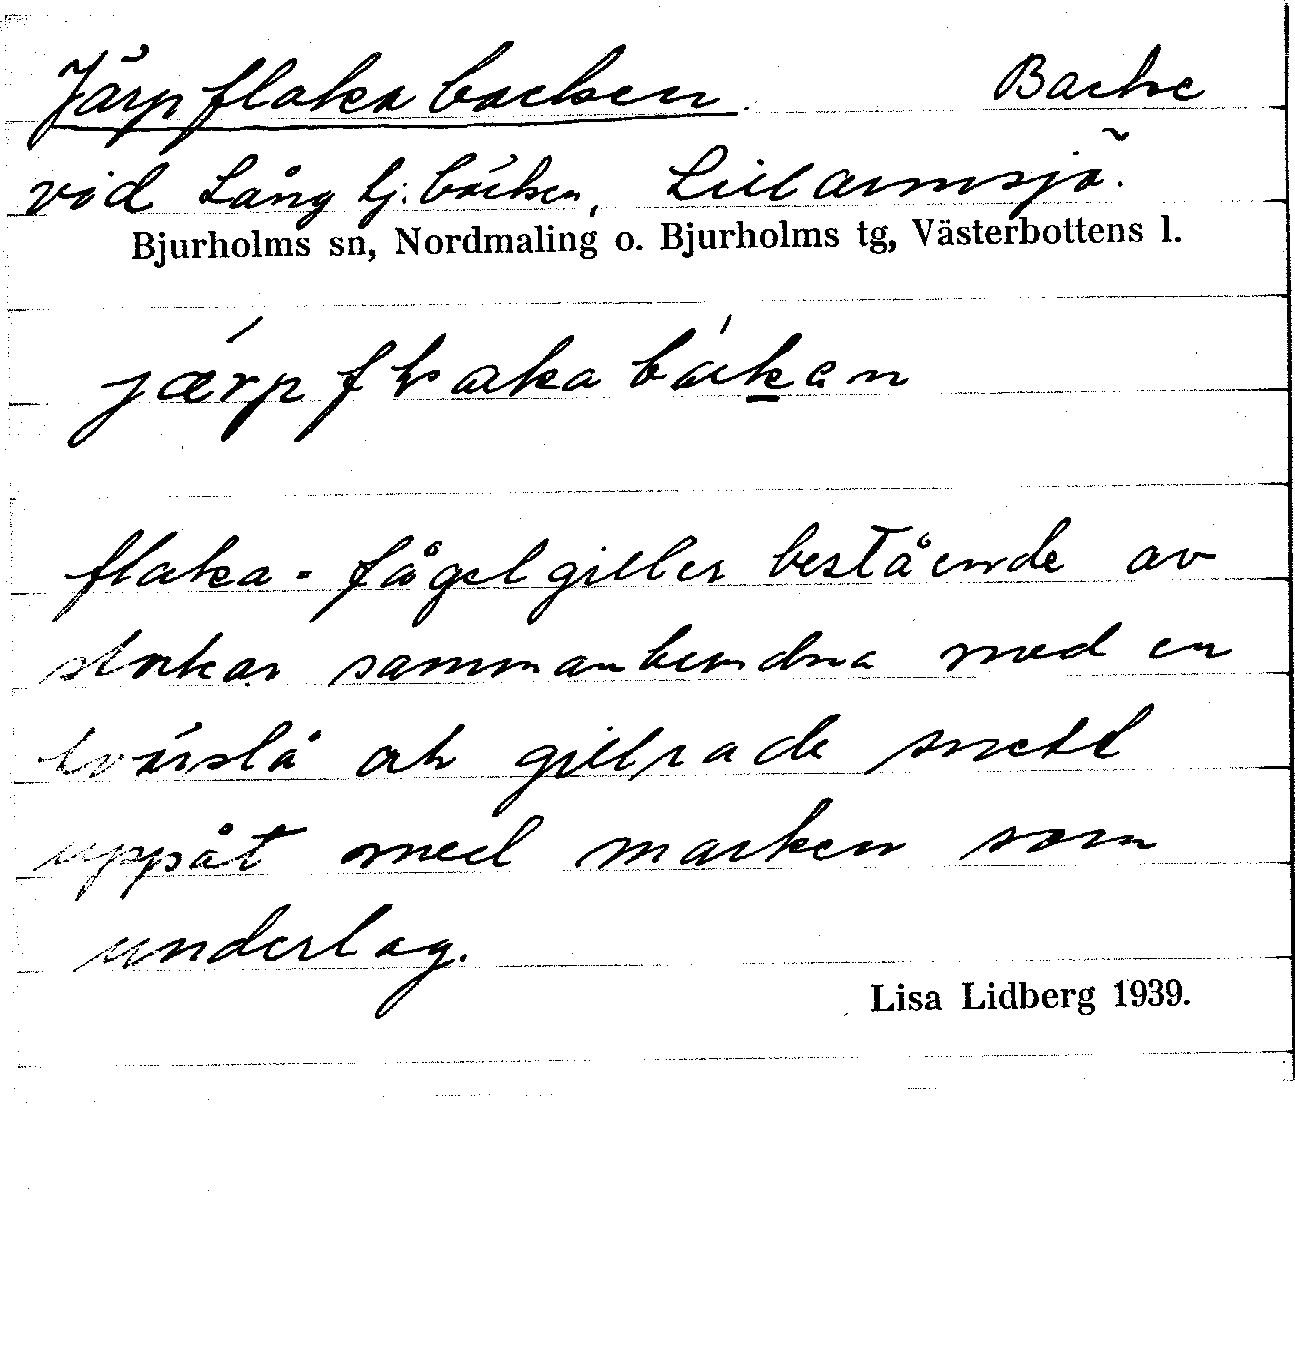 Järpflakabacken. Backe
vid Långtj.bäcken, Lillarmsjö.
Bjurholms sn, Nordmaling o. Bjurholms tg, Västerbottens l.
flaka - fågelgiller bestående av
stockar sammanbundna med en
tvärslå och gillrade snett
uppåt med marken som
underlag.
Lisa Lidberg 1939.